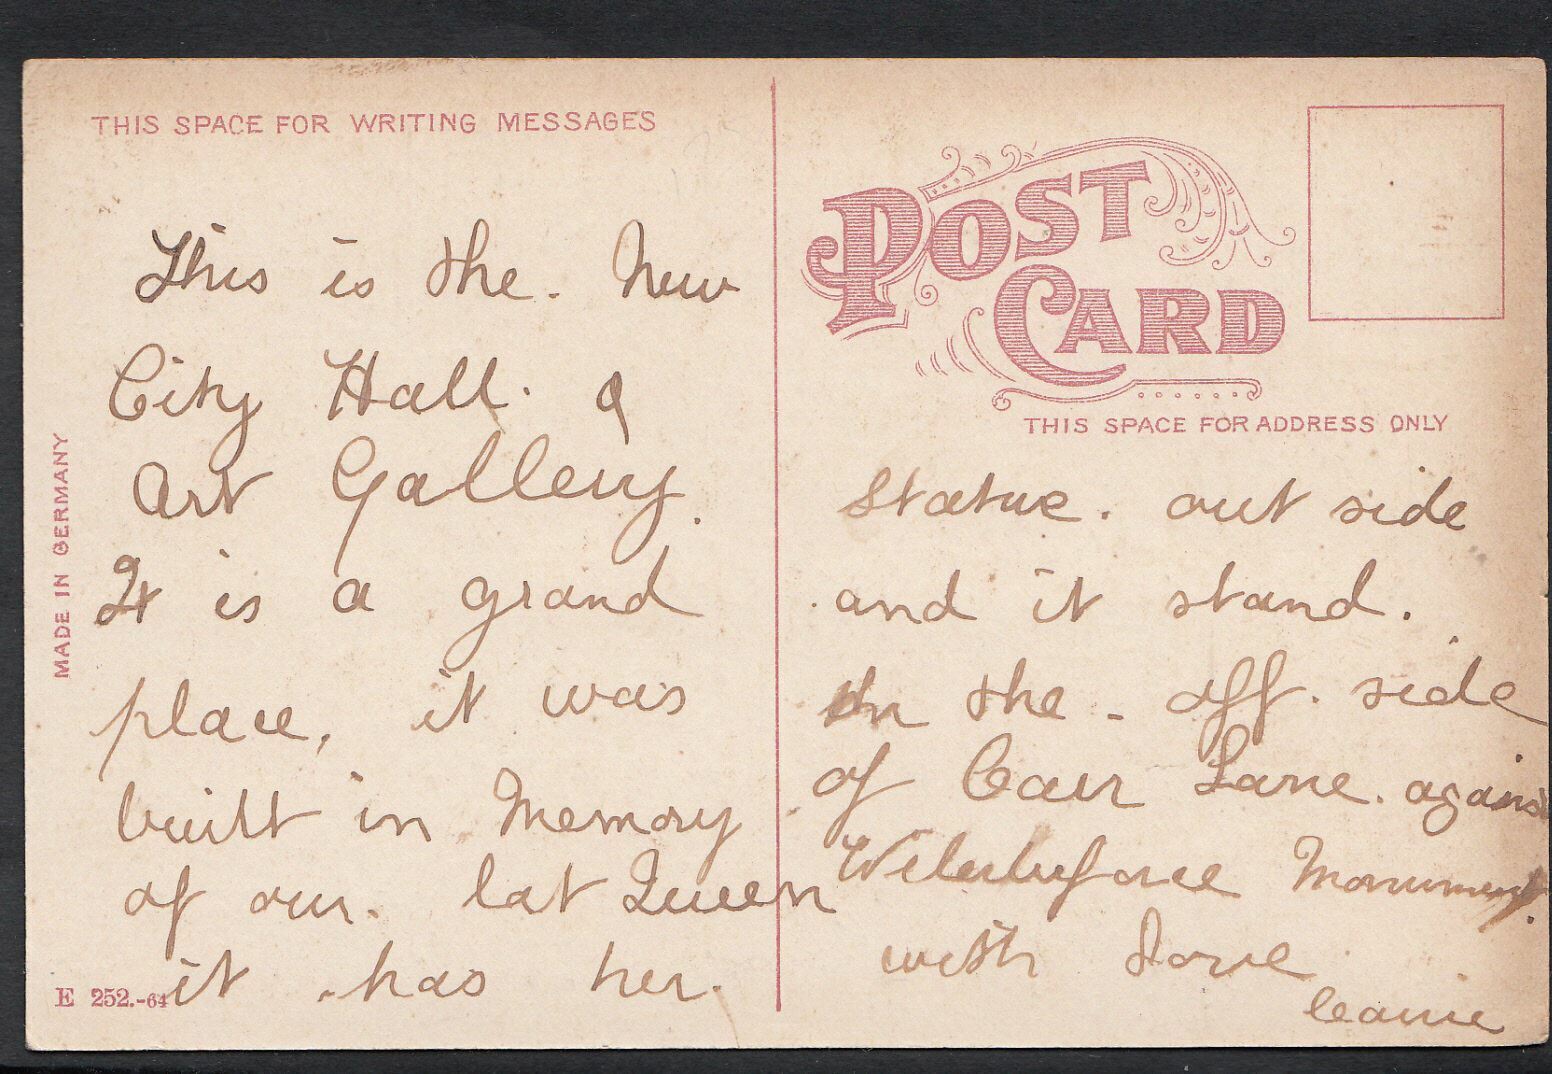 THIS SPACE FOR WRITING MESSAGES
This is the. New
City Hall. &
Art Gallery.
It is a grand
place, it was
built in Memory
of our. lat Queen
it has her.
MADE IN GERMANY
E 252.-64
POST
CARD
THIS SPACE FOR ADDRESS ONLY
Statue. out side
and it stand.
in the - off. side
of Carr Lane. against
Wilerbuforce Monument.
with Love